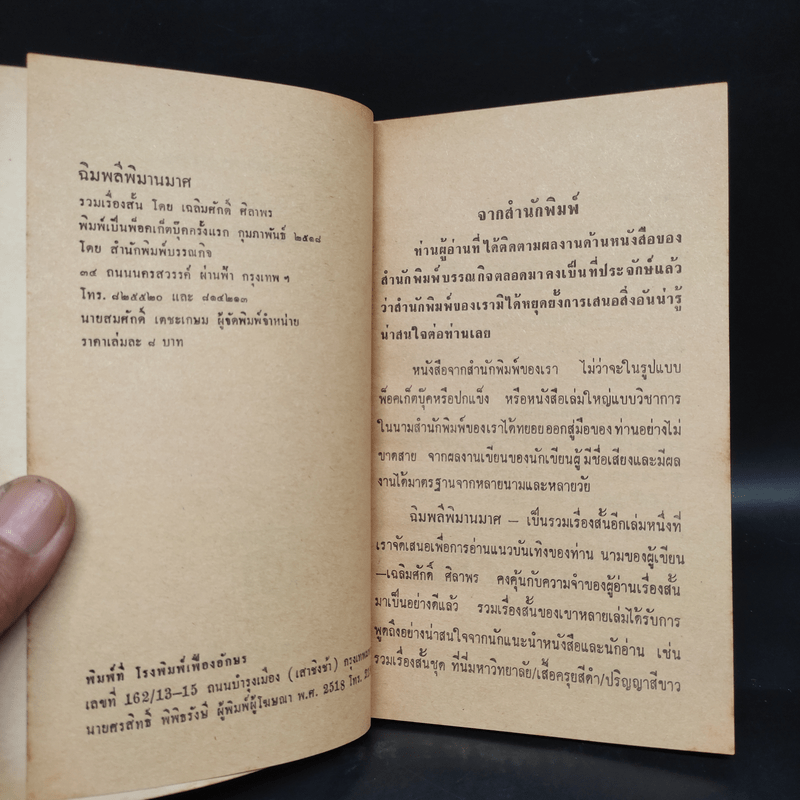 ฉิมพลีพิมานมาศ
รวมเรื่องสั้น โดย เฉลิมศักดิ์ ศิลาพร
พิมพ์เป็นพ็อคเก็ตบุ๊คครั้งแรก กุมภาพันธ์ ๒๕๑๘
โดย สำนักพิมพ์บรรณกิจ
๓๔ ถนนนครสวรรค์ ผ่านฟ้า กรุงเทพ ฯ
โทร. ๘๒๕๕๒๐ และ ๘๑๔๒๑๓
นายสมศักดิ์ เตชะเกษม ผู้จัดพิมพ์จำหน่าย
ราคาเล่มละ ๘ บาท
พิมพ์ที่ โรงพิมพ์เฟื่องอักษร
เลขที่ 162/13-15 ถนนบำรุงเมือง (เสาชิงช้า)
นายศรสิทธิ์ พิพิธรังษี ผู้พิมพ์ผู้โฆษณา พ.ศ. 2518 โทร.
จากสำนักพิมพ์
ท่านผู้อ่านที่ได้ติดตามผลงานด้านหนังสือของ
สำนักพิมพ์บรรณกิจตลอดมา คงเป็นที่ประจักษ์แล้ว
ว่าสำนักพิมพ์ของเรามิได้หยุดยั้งการเสนอสิ่งอันน่ารู้
น่าสนใจต่อท่านเลย
หนังสือจากสำนักพิมพ์ของเรา ไม่ว่าจะในรูปแบบ
พ็อคเก็ตบุ๊คหรือปกแข็ง หรือหนังสือเล่มใหญ่แบบวิชาการ
ในนามสำนักพิมพ์ของเราได้ทยอยออกสู่มือของท่านอย่างไม่
ขาดสาย จากผลงานเขียนของนักเขียนผู้มีชื่อเสียงและมีผล
งานได้มาตรฐานจากหลายนามและหลายวัย
ฉิมพลีพิมานมาศ – เป็นรวมเรื่องสั้นอีกเล่มหนึ่งที่
เราจัดเสนอเพื่อการอ่านแนวบันเทิงของท่าน นามของผู้เขียน
–เฉลิมศักดิ์ ศิลาพร คงคุ้นกับความจำของผู้อ่านเรื่องสั้น
มาเป็นอย่างดีแล้ว รวมเรื่องสั้นของเขาหลายเล่มได้รับการ
พูดถึงอย่างน่าสนใจจากนักแนะนำหนังสือและนักอ่าน เช่น
รวมเรื่องสั้นชุด ที่นี่มหาวิทยาลัย/เสื้อครุยสีดำ/ปริญญาสีขาว